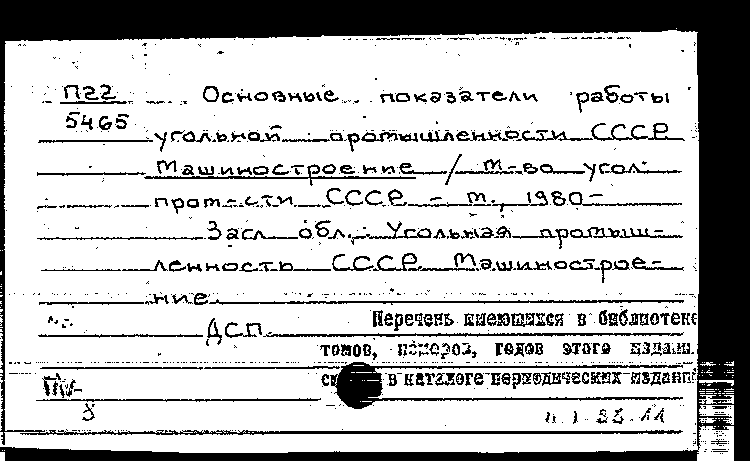 П22 Основные показатели работы
5465 угольной промышленности СССР
Машиностроение / М-во угол.
пром-сти СССР. – М., 1980–
Загл. обл.: Угольная промыш-
ленность СССР. Машинострое-
ние.
ДСП. Перечень имеющихся в библиотеке
томов, номеров, годов этого издани
в каталоге периодических издани
8